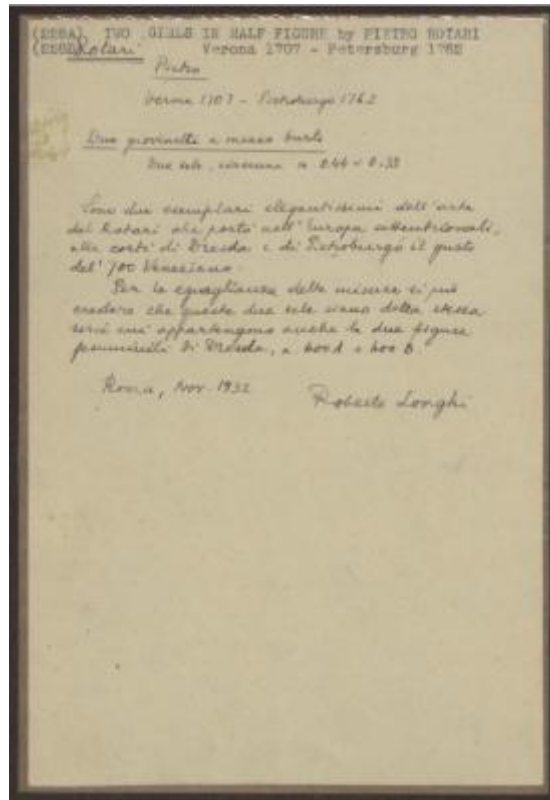 (228A) TWO GIRLS IN HALF FIGURE by PIETRO ROTARI
Rotari Verona 1707 - Petersburg 1762
Pietro
Verona 1707 - Pietroburgo 1762
Due giovinette a mezzo busto
Due tele, ciascuna m 0.44 x 0.35
Sono due esemplari elegantissimi dell'arte
del Rotari che portò nell'Europa settentrionale,
alle corti di Dresda e di Pietroburgo il gusto
del '700 Veneziano.
Per la eguaglianza delle misure si può
credere che queste due tele siano della stessa
serie cui appartengono anche le due figure
femminili di Dresda, n 600 A e 600 B.
Roma, Nov. 1932
Roberto Longhi